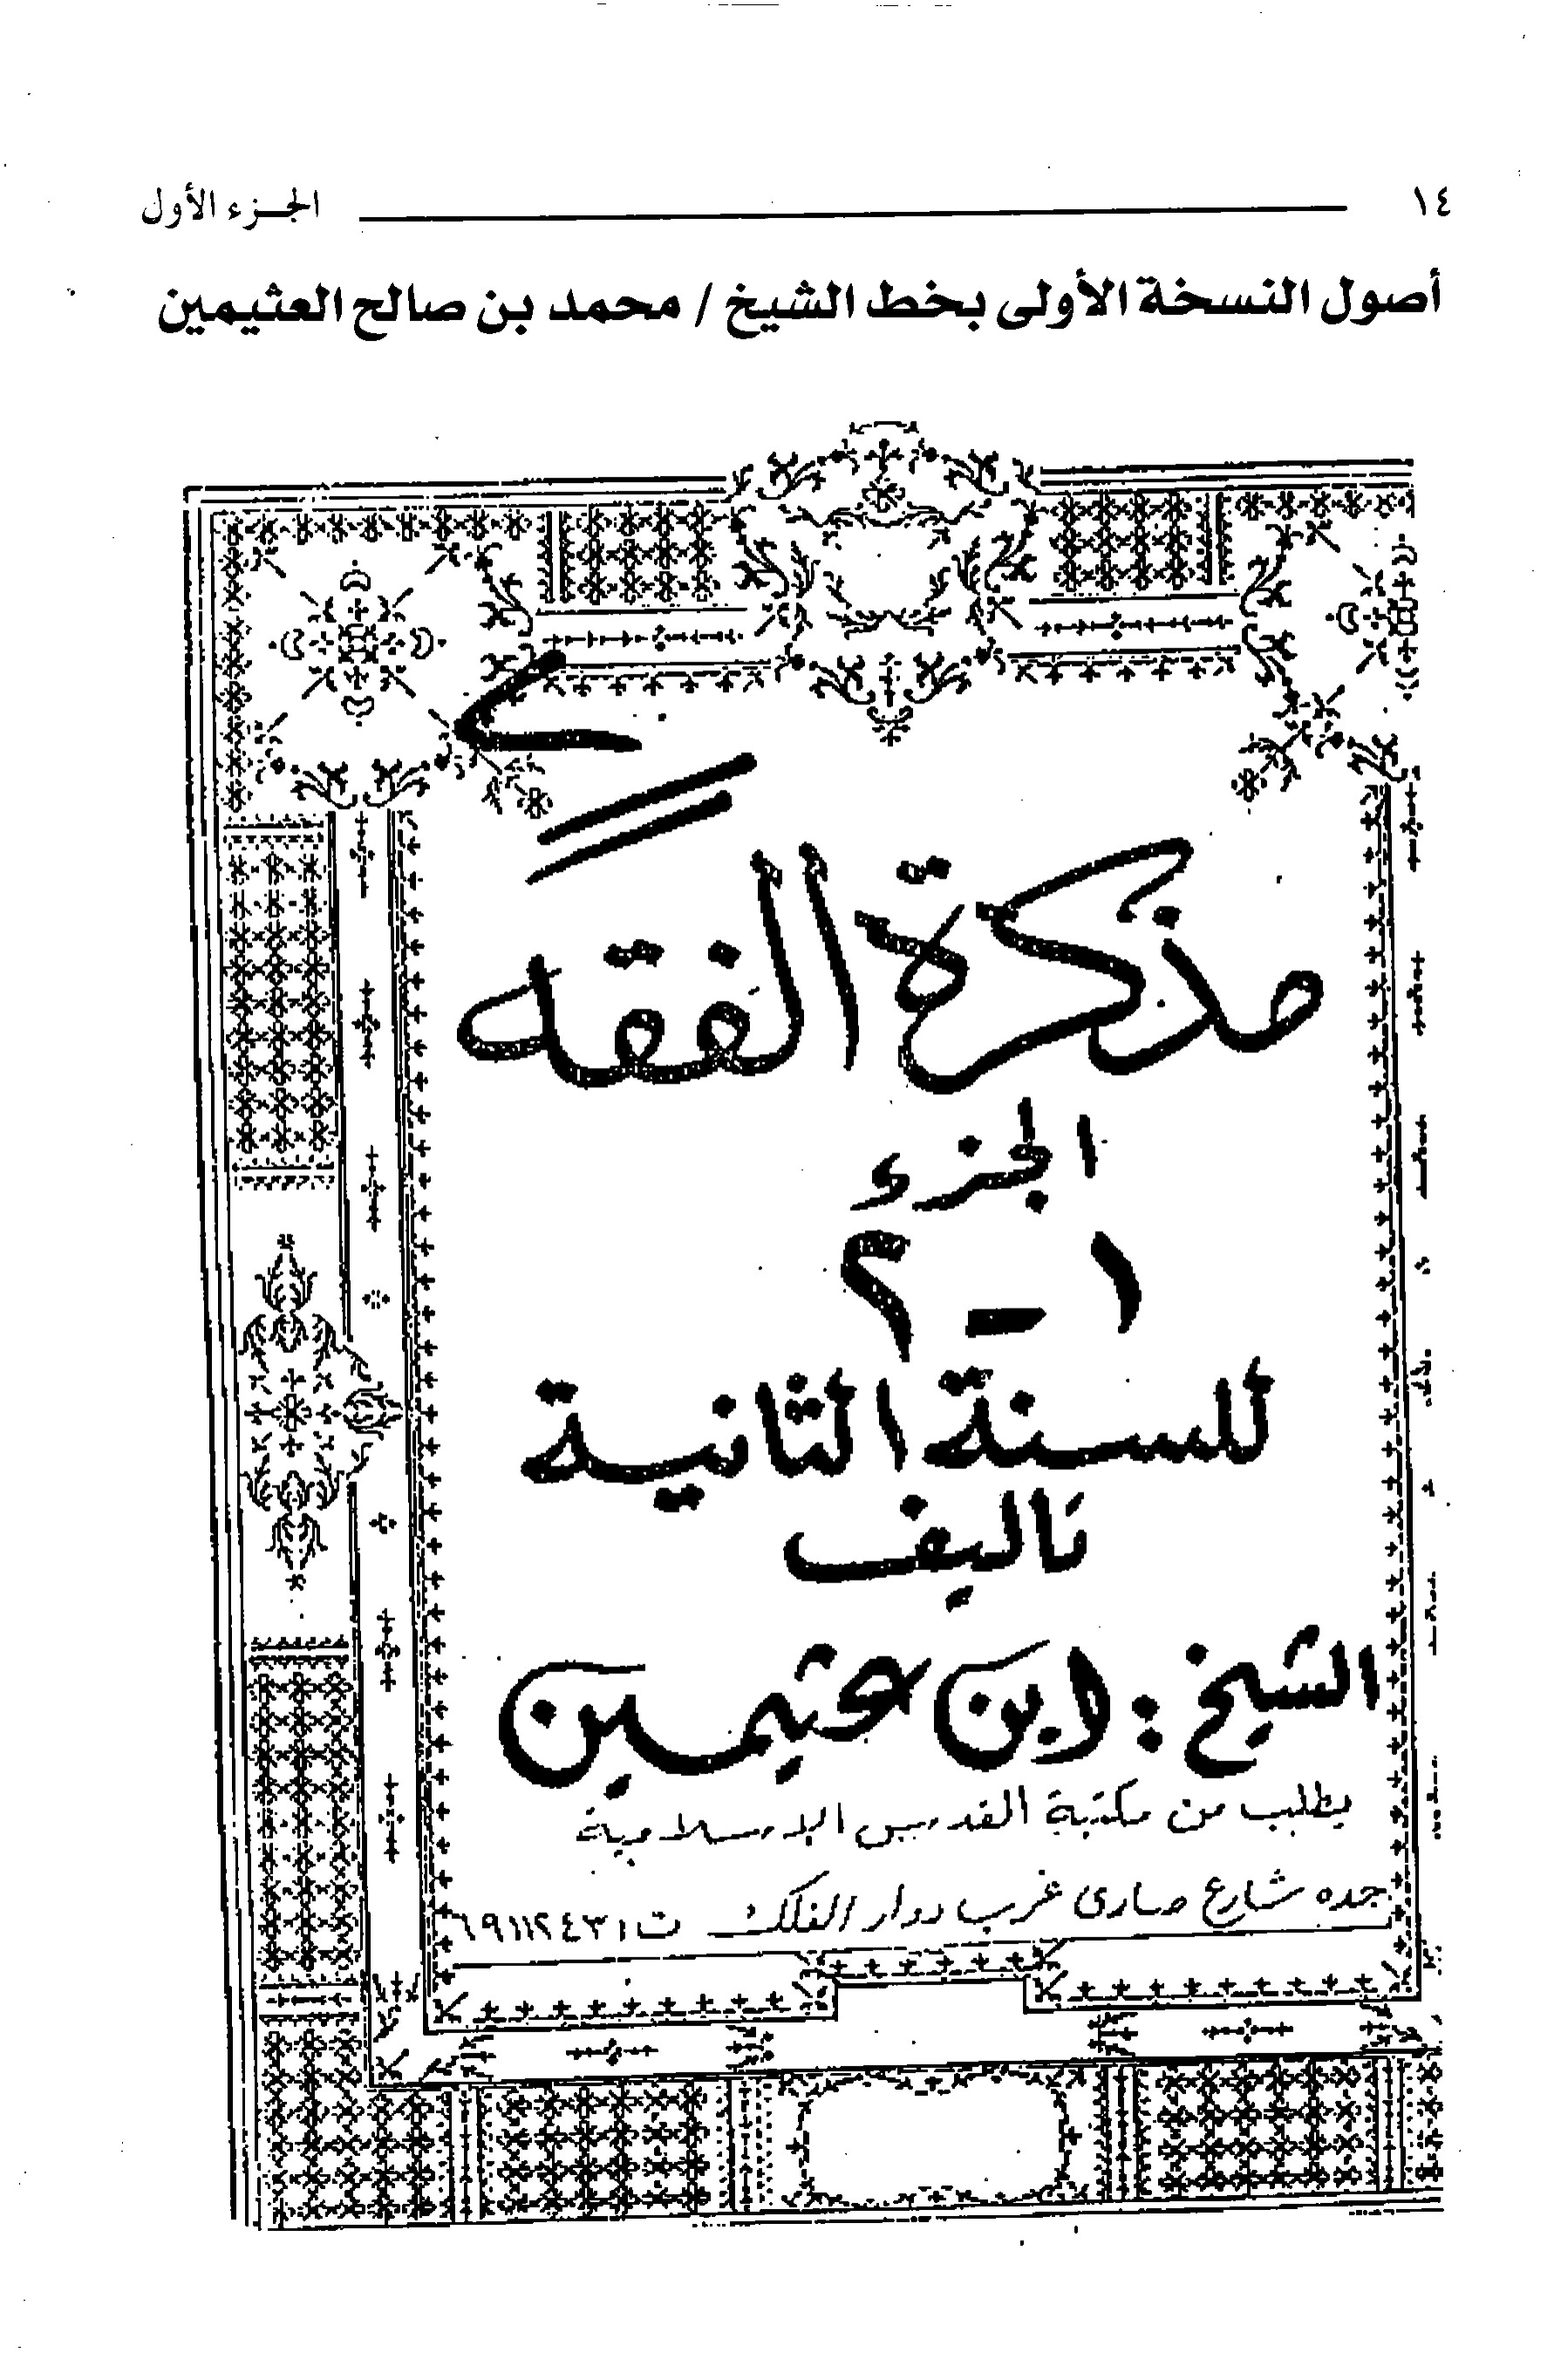 ١٤ الجزء الأول
أصول النسخة الأولى بخط الشيخ / محمد بن صالح العثيمين
مذكرة الفقه
الجزء
١ - ٢
للسنة الثانية
تاليف
الشيخ : ابن عثيمين
يطلب من مكتبة القدس الاسلامية
جده شارع صارى غرب دوار الفلك ت